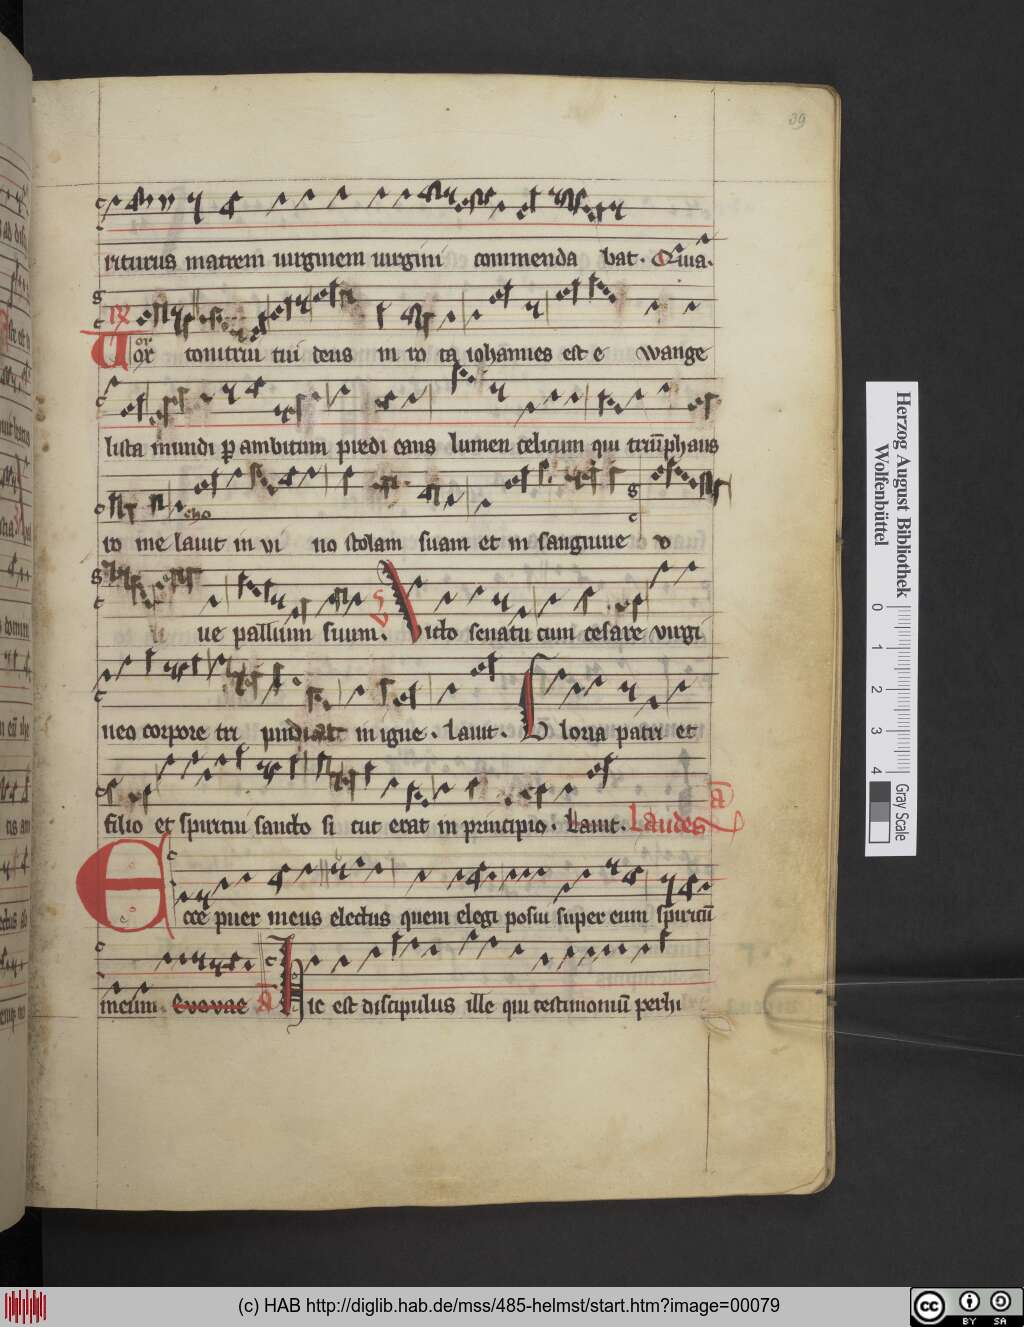 39
riturus matrem uirginem uirgini commenda bat. Qui ua.
Uox tonitrui tui deus in ro ta iohannes est e wange
lista mundi ꝑ ambitum predi cans lumen celicum qui triūphans
ro me lauit in vi no stolam suam et in sanguine o
ue pallium suum. V Uicto senatu cum cesare virgi
neo corpore tri pudiat in igne. Lauit. Gloria patri et
filio et spiritui sancto si cut erat in principio. Lauit. Laudes a
Ecce puer meus electus quem elegi posui super eum spiritū
meum. Evovae A Hic est discipulus ille qui testimoniū perhi
Herzog August Bibliothek
Wolfenbüttel
0 1 2 3 4
Gray Scale
(c) HAB http://diglib.hab.de/mss/485-helmst/start.htm?image=00079
cc BY SA